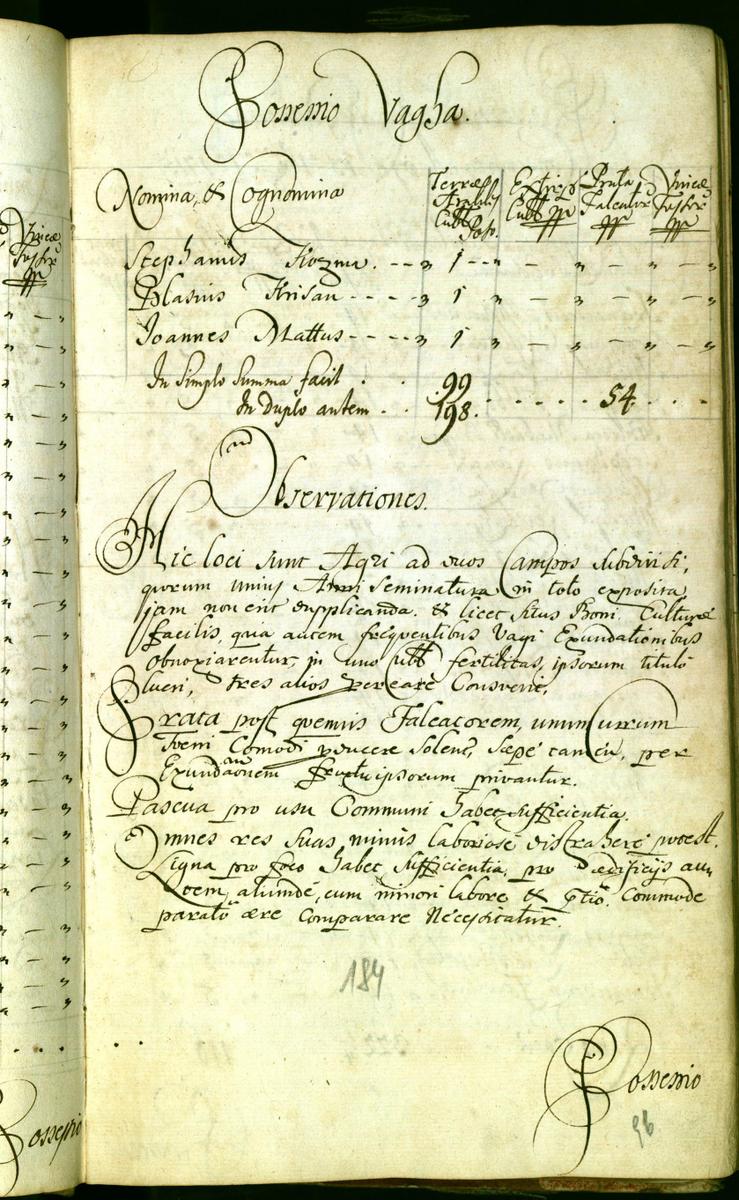 Possessio Vagha.
Nomina, & Cognomina
Terræ Arabiles Cubb Poson.
Extirp. Cubb
Prata Falcator
Vineæ Fossor
Stephanus Kozma. - - „ 1 - - „ - - „ - „ - „
Blasius Krisan - - - - „ 1 „ - - „ - „ - „
Joannes Mattus - - - - „ 1 „ - - „ - „ - „
In Simplo Summa facit . . 99
In Duplo autem . . 198. . . . . . 54. . . .
Observationes.
Hic loci sunt Agri ad duos Campos subdivisi,
quorum unius Anni Seminatura in toto exposita,
jam non erit dupplicanda. & licet situs Boni, Culturæ
facilis, quia autem freqventibus Vagi Exundationibus
obnoxiarentur, in uno Cubb fertilitas, ipsorum titulo
plueri, tres alios per eare Consvevit.
Prata post quemvis Falcatorem, unum Currum
Foeni Comodi producere solent, sæpe tamen, per
Exundaonem fructu ipsorum privantur.
Pascua pro usu Communi habet sufficientia.
Omnes res suas minus laboriose distrahere potest.
Ligna pro foco habet sufficientia, pro ædificijs au„
tem, aliunde, cum minori labore & ptio Commode
parato ære Comparare Necessitatur.
184
Possessio
96
Vineæ
Fossor
Possessio